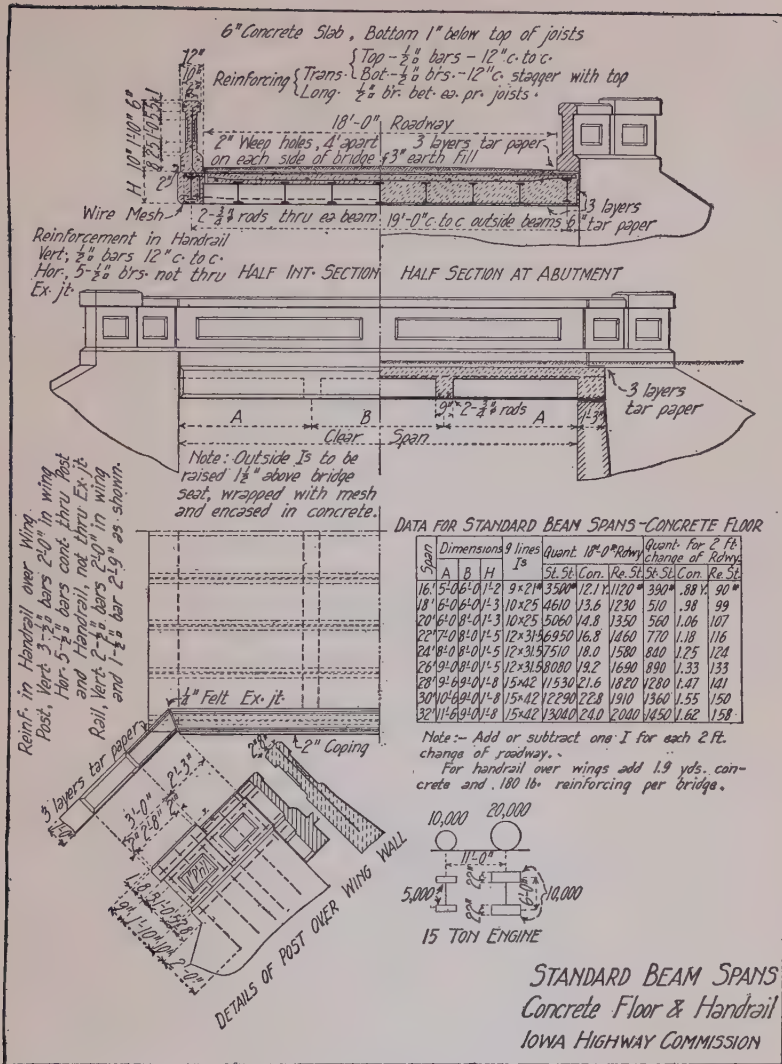 6" Concrete Slab, Bottom 1" below top of joists
Reinforcing { Trans. { Top - ½"□ bars - 12" c. to c.
Bot. - ½"□ b'rs. - 12" c. stagger with top
Long. ½"□ b'r. bet. ea. pr. joists.
12"
10"
18'-0" Roadway
2" Weep holes, 4' apart
on each side of bridge
3 layers tar paper
3" earth fill
H 10" 1'-10" 6"
2"
Wire Mesh
2-¾"φ rods thru ea beam
19'-0" c. to c. outside beams
6"
3 layers
tar paper
Reinforcement in Handrail
Vert., ½"□ bars 12" c. to c.
Hor., 5-½"□ b'rs. not thru
Ex. jt.
HALF INT. SECTION
HALF SECTION AT ABUTMENT
3 layers
tar paper
9"
2-¾"φ rods
A
B
A
1'-3"
Clear Span
Note: Outside Is to be
raised 1½" above bridge
seat, wrapped with mesh
and encased in concrete.
Reinf. in Handrail over Wing.
Post, Vert. 3-½"□ bars 2'-0" in wing
Hor. 5-½"□ bars cont. thru Post
and Handrail, not thru Ex. jt.
Rail, Vert. 2-½"□ bars 2'-0" in wing
and 1-½"□ bar 2'-9" as shown.
DATA FOR STANDARD BEAM SPANS - CONCRETE FLOOR
Span Dimensions 9 lines Is Quant. 18'-0" Rdwy Quant. for 2 ft. change of Rdwy.
A B H St.St. Con. Re.St. St.St. Con. Re.St.
16' 5'-0 6'-0 1'-2 9×21# 3500# 12.1 Y. 1120# 390# .88 Y. 90#
18' 6'-0 6'-0 1'-3 10×25 4610 13.6 1230 510 .98 99
20' 6'-0 8'-0 1'-3 10×25 5060 14.8 1350 560 1.06 107
22' 7'-0 8'-0 1'-5 12×31.5 6950 16.8 1460 770 1.18 116
24' 8'-0 8'-0 1'-5 12×31.5 7510 18.0 1580 840 1.25 124
26' 9'-0 8'-0 1'-5 12×31.5 8080 19.2 1690 890 1.33 133
28' 9'-6 9'-0 1'-8 15×42 11530 21.6 1820 1280 1.47 141
30' 10'-6 9'-0 1'-8 15×42 12290 22.8 1910 1360 1.55 150
32' 11'-6 9'-0 1'-8 15×42 13040 24.0 2040 1450 1.62 158
Note:- Add or subtract one I for each 2 ft.
change of roadway.
For handrail over wings add 1.9 yds. con-
crete and 180 lb. reinforcing per bridge.
¼" Felt Ex. jt.
3 layers tar paper
2" Coping
2'-8"
2'-3"
3'-0"
2'-8"
2"
9" 1'-10" 10"
2'-0"
DETAILS OF POST OVER WING WALL
10,000
20,000
11'-0"
5,000
22"
22"
6'-0"
10,000
15 TON ENGINE
STANDARD BEAM SPANS
Concrete Floor & Handrail
IOWA HIGHWAY COMMISSION